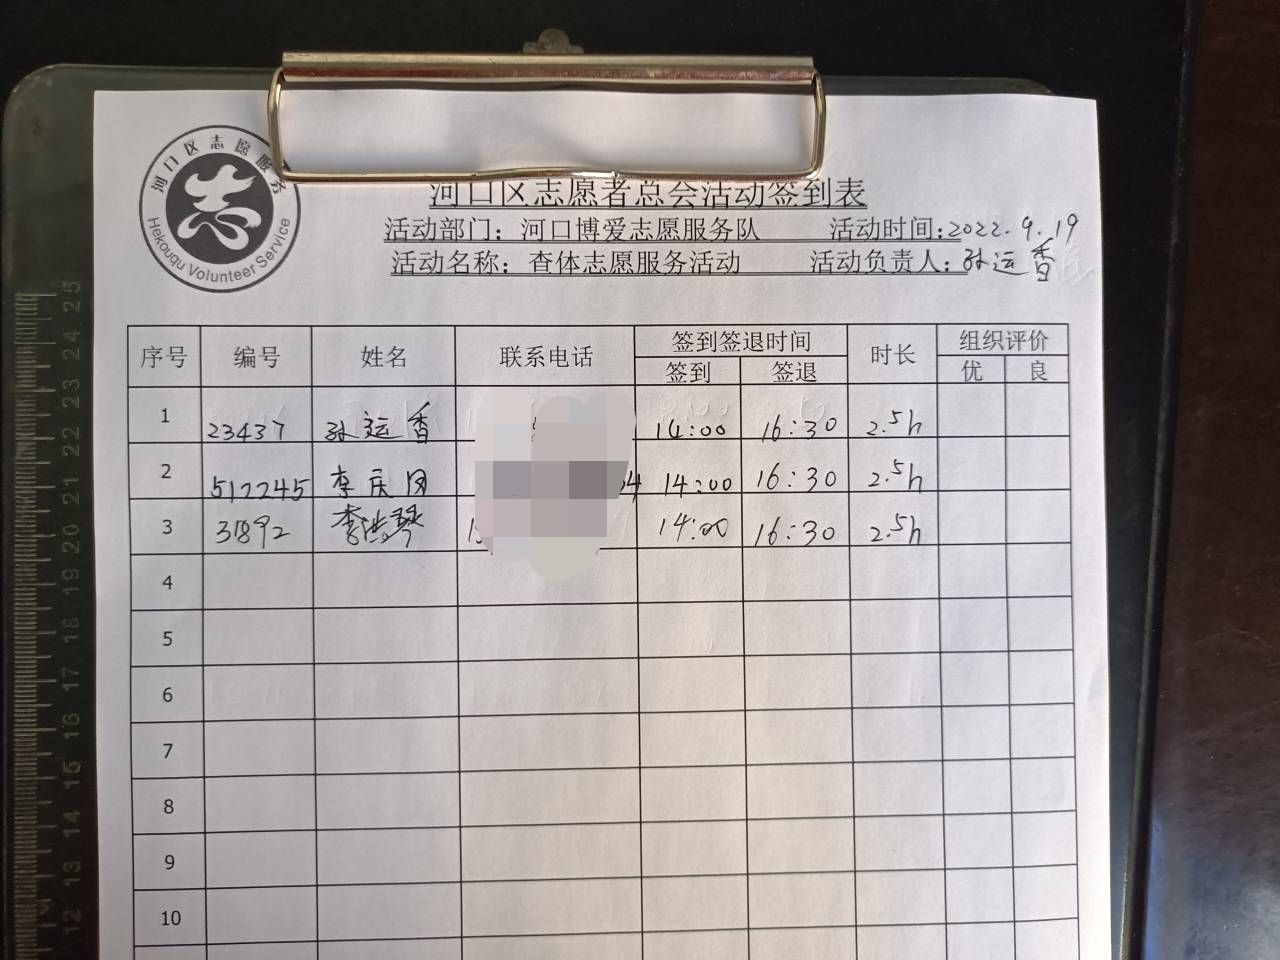 河口区志愿服务
志
Hekouqu Volunteer Service
河口区志愿者总会活动签到表
活动部门：河口博爱志愿服务队 活动时间：2022.9.19
活动名称：查体志愿服务活动 活动负责人：孙运香
序号 编号 姓名 联系电话 签到签退时间 时长 组织评价
签到 签退 优 良
1 23437 孙运香 14:00 16:30 2.5h
2 512245 李庆 14:00 16:30 2.5h
3 31892 李 琴 14:00 16:30 2.5h
4
5
6
7
8
9
10
25
24
23
22
21
20
19
18
17
16
15
14
13
12